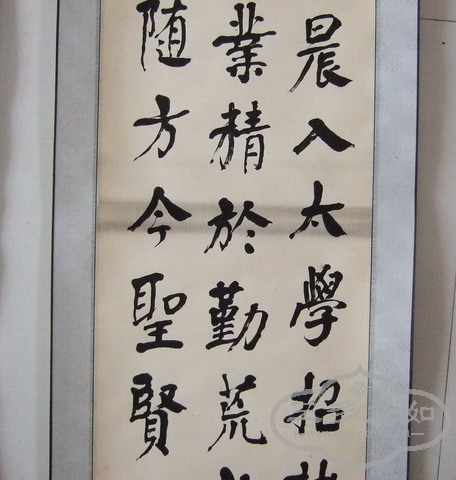 晨入太學招
業精於勤荒
随方今聖賢